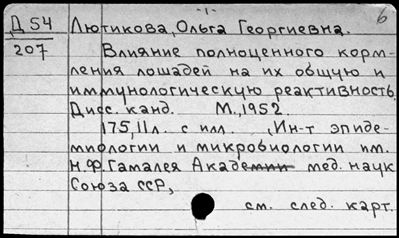 -1- б
Д 54 Лютикова, Ольга Георгиевна.
207 Влияние полноценного корм-
ления лошадей на их общую и
иммунологическую реактивность.
Дисс. канд. М., 1952.
175, 11 л. с илл. (Ин-т эпиде-
миологии и микробиологии им.
Н.Ф. Гамалея Академии мед. наук
Союза ССР,
см. след. карт.